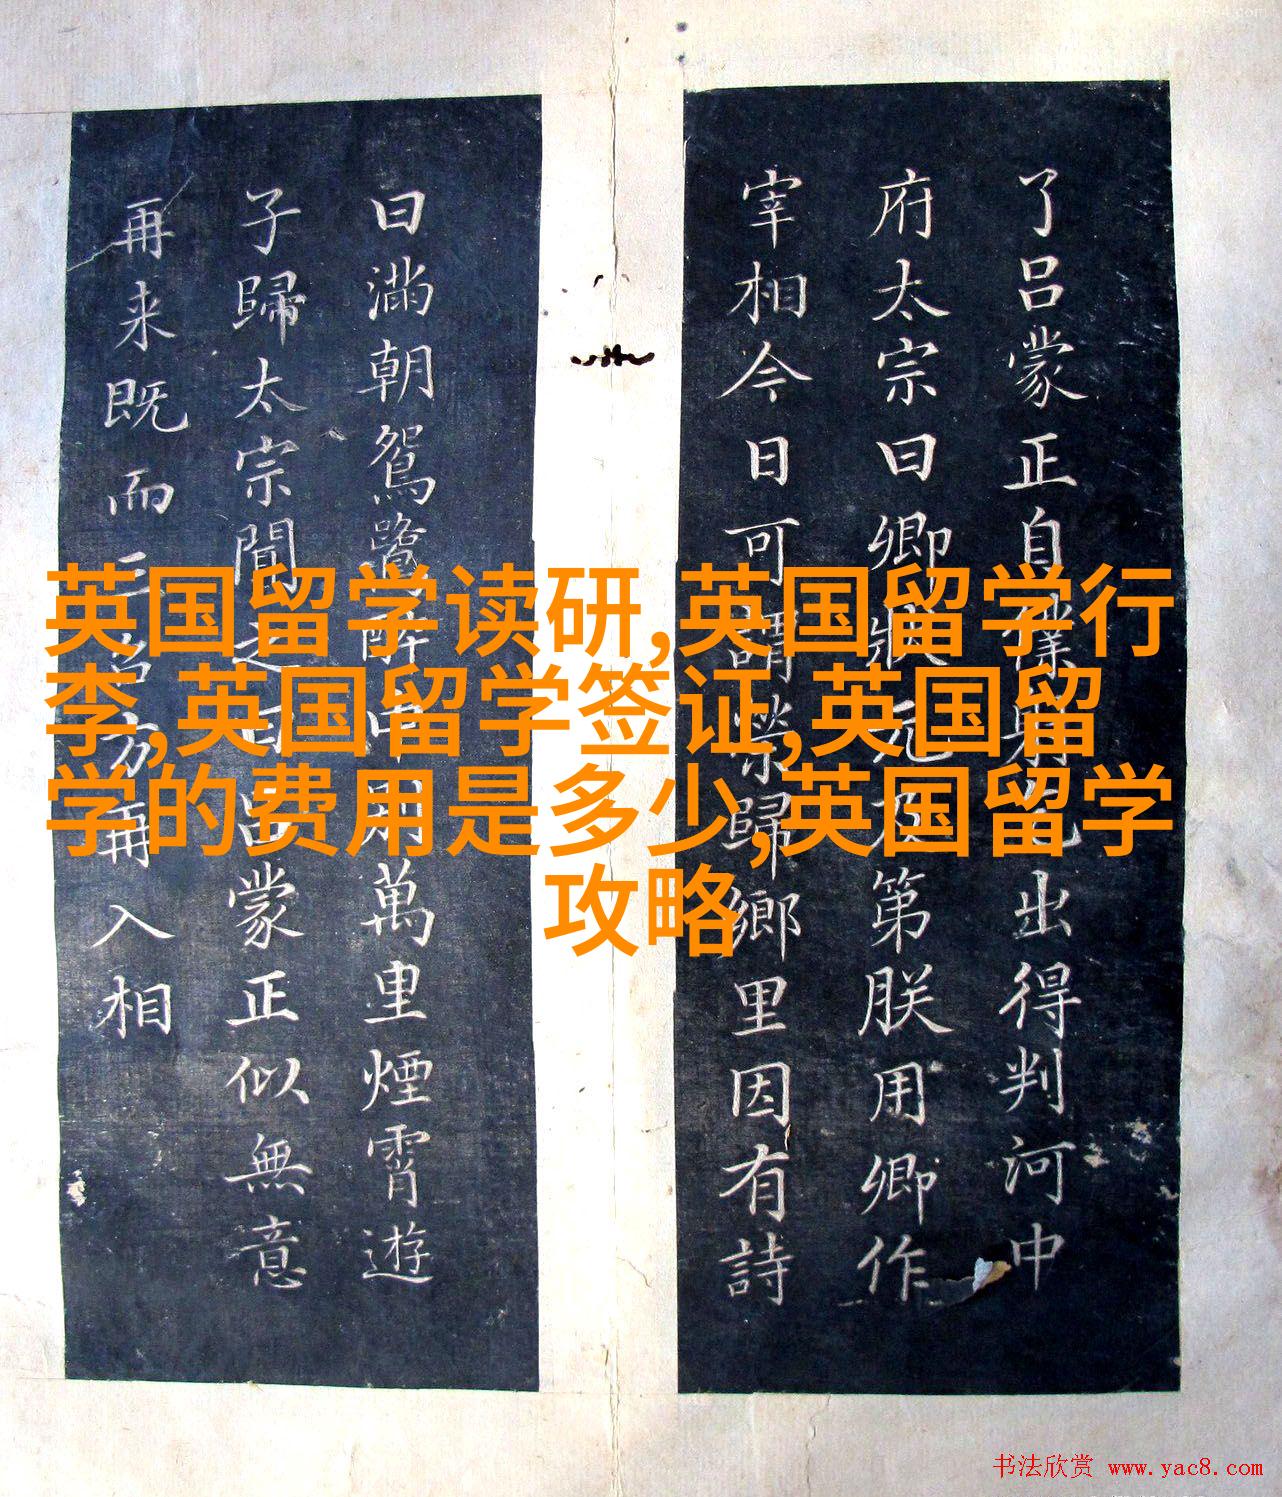 了吕蒙正自僕射出得判河中
府太宗曰卿狀元及第朕用卿作
宰相今日可謂榮歸鄉里因有詩
曰滿朝鴛鷺醉中別萬里煙霄遊
子歸太宗聞之曰吕蒙正似無意
再来既而三再入相
英国留学读研,英国留学行
李,英国留学签证,英国留
学的费用是多少,英国留学
攻略
书法欣赏 www.yac8.com